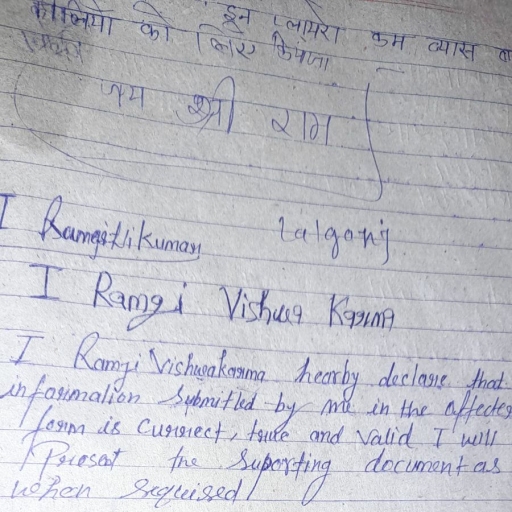 इन प्लायेरा कम व्यास
कालियो को लिए
जय श्री राम
I Ramgitikumar Lalganj
I Ramgi Vishwa Karma
I Ramji Vishwakarma hearby declare that
information Submitted by me in the affected
form is currect, true and valid I will
Present the Suporting document as
when required